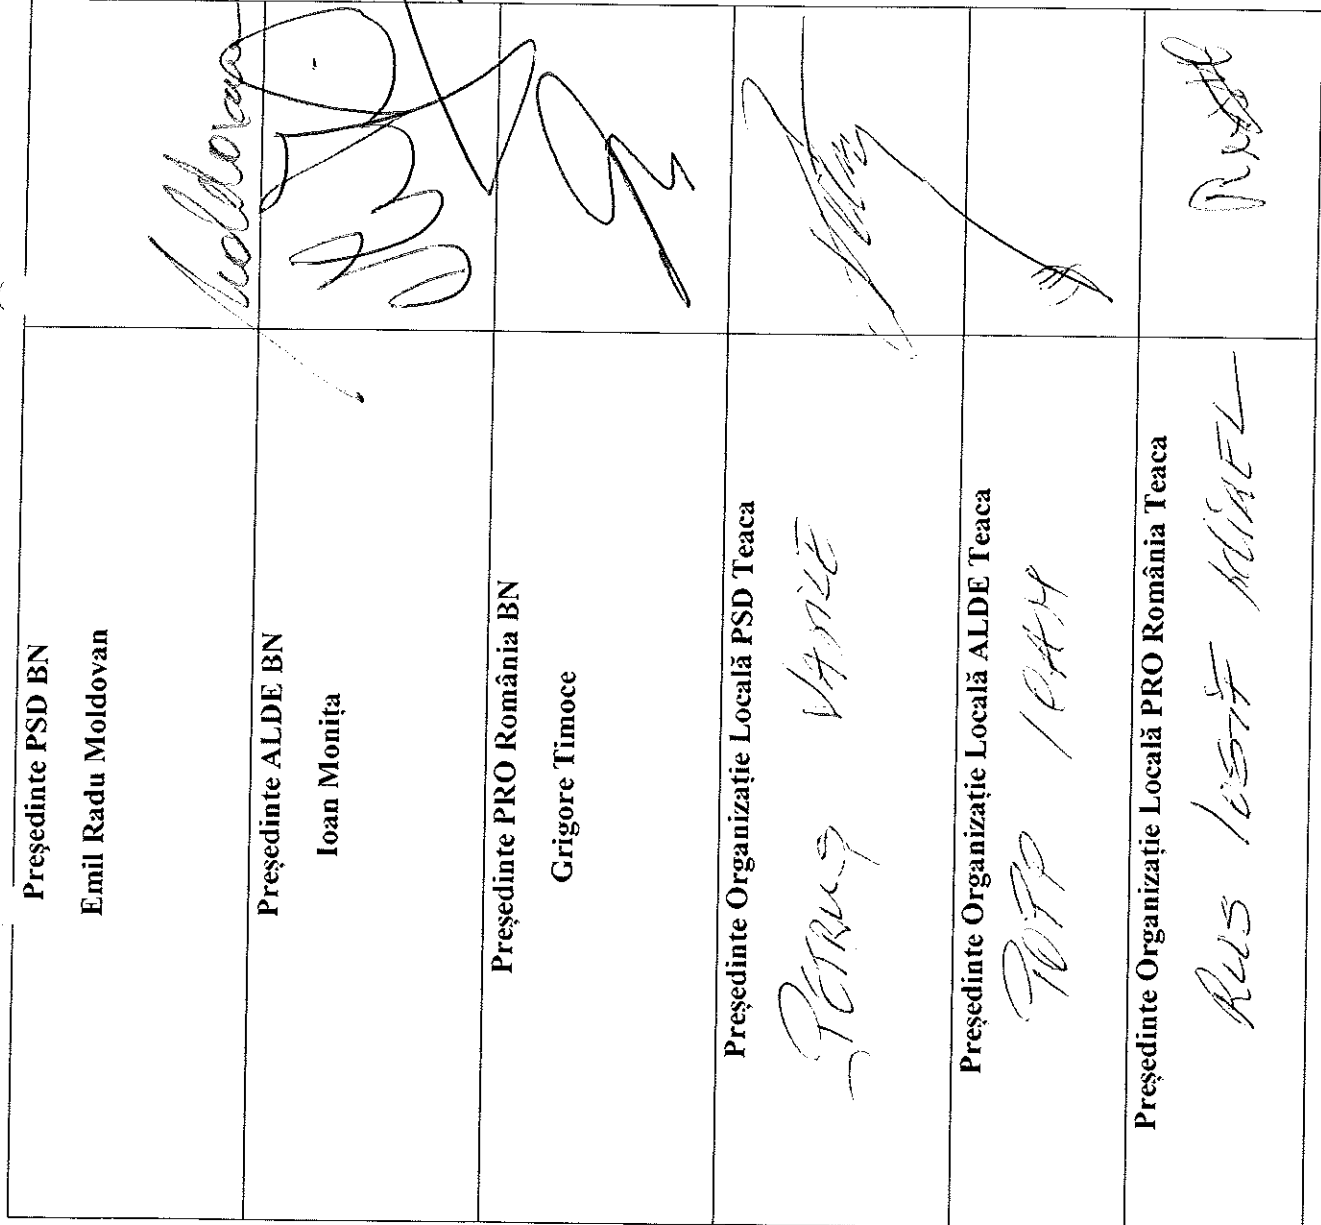 Președinte PSD BN
Emil Radu Moldovan
Moldovan
Președinte ALDE BN
Ioan Monița
Președinte PRO România BN
Grigore Timoce
Președinte Organizație Locală PSD Teaca
PETRUȘ VASILE
Președinte Organizație Locală ALDE Teaca
POPP IOAN
Președinte Organizație Locală PRO România Teaca
RUS IOSIF MIREL